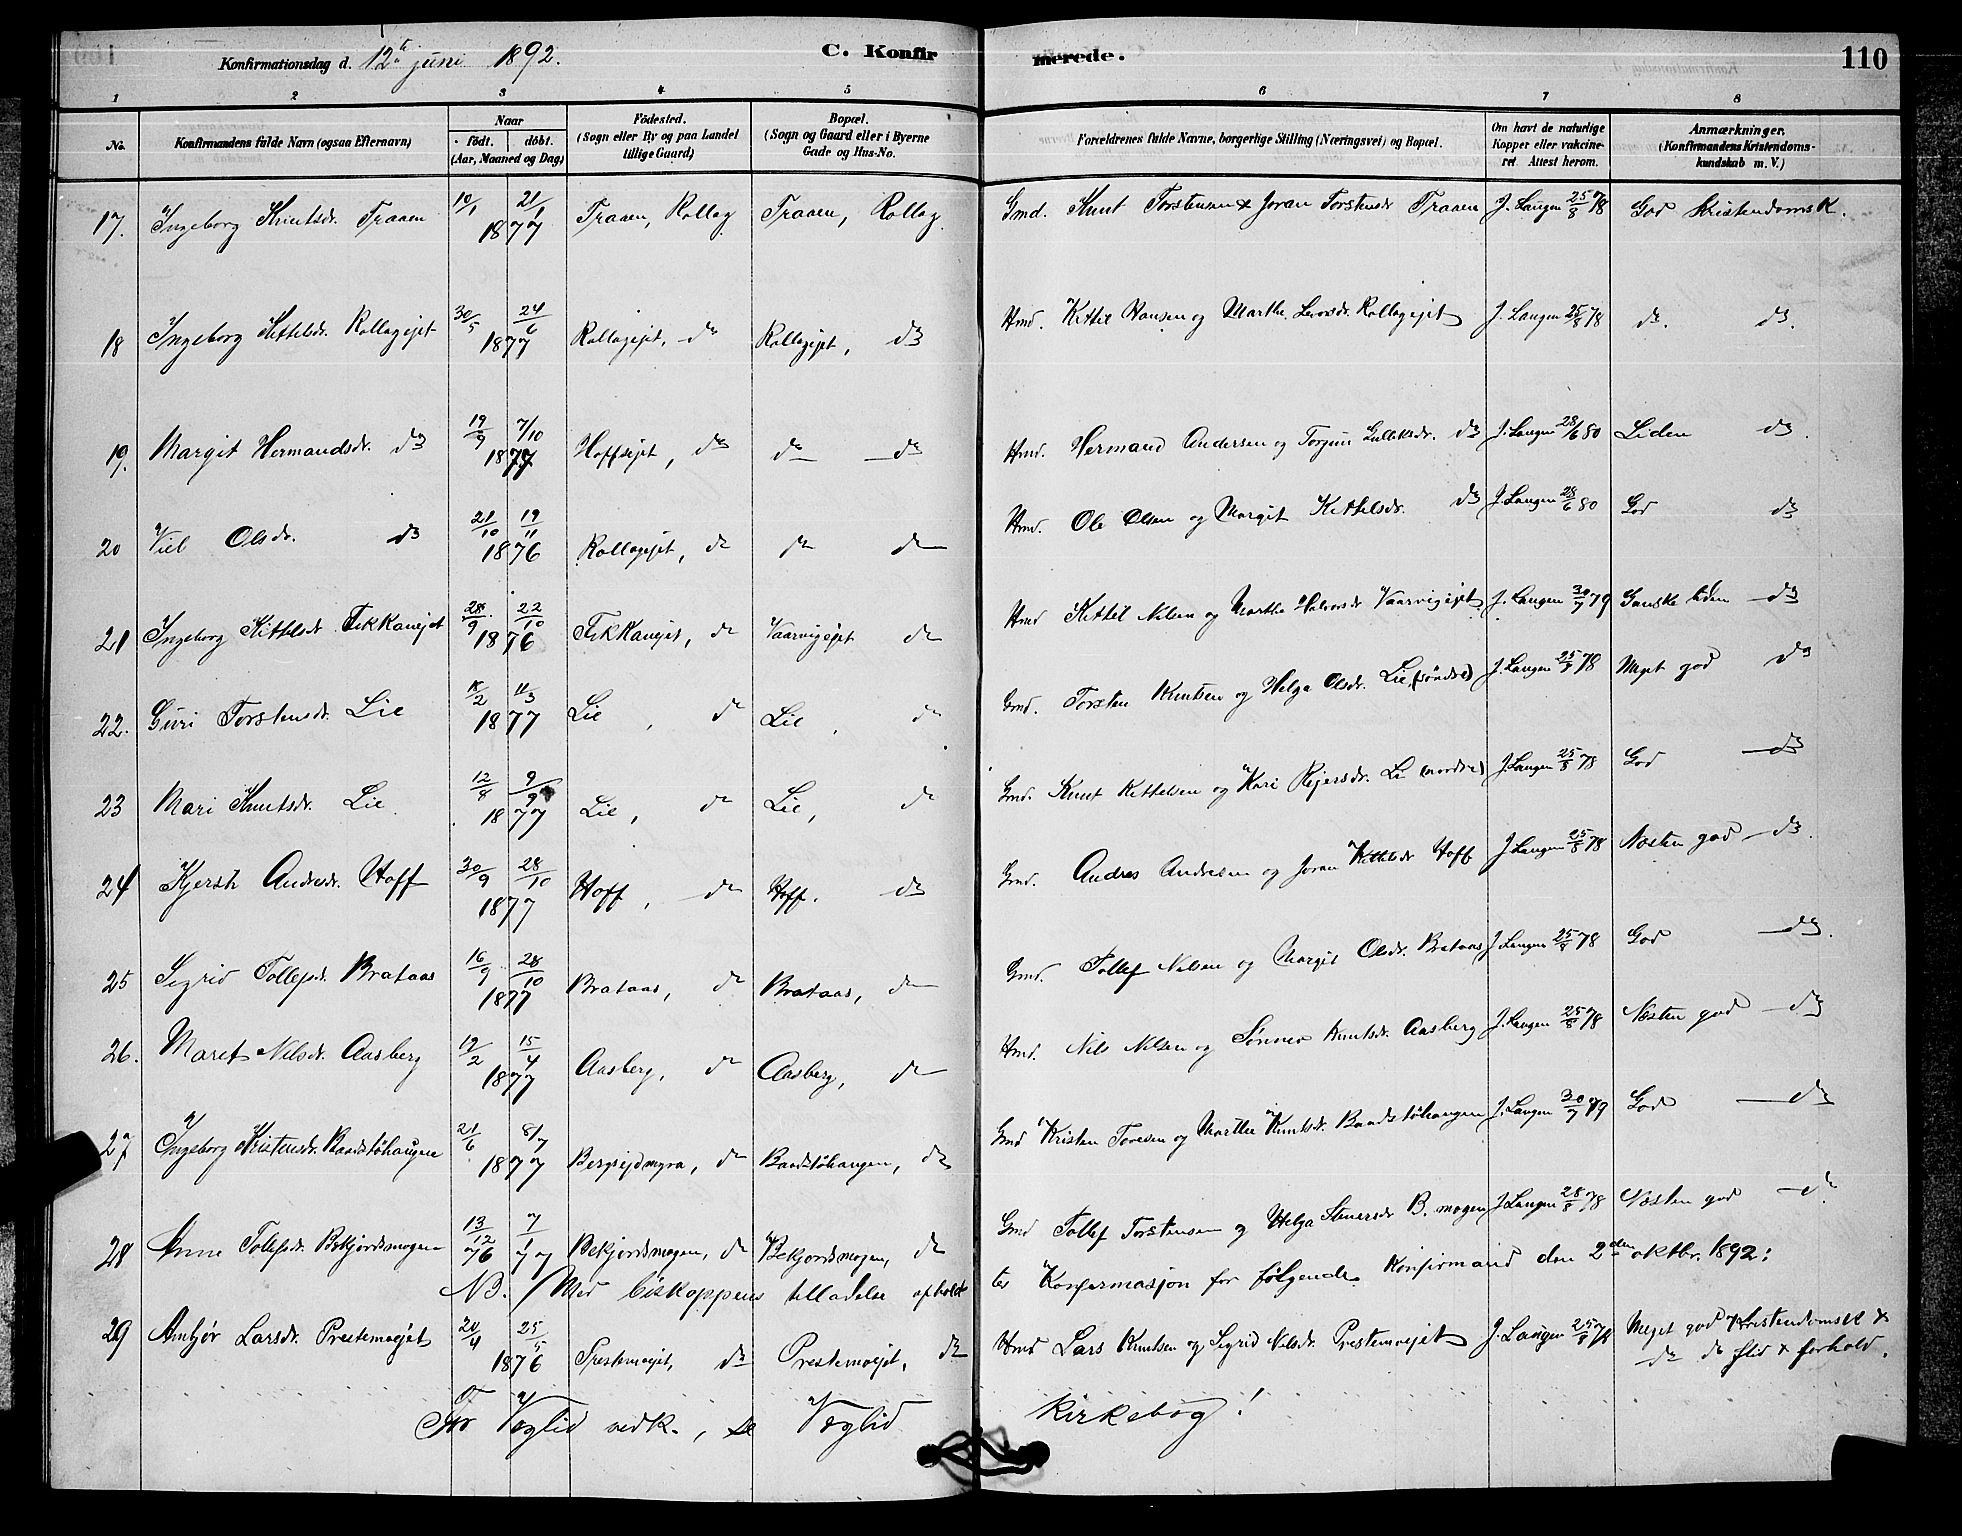 Konfirmationsdag d. 12te juni 1892. C. Konfirmerede. 110
1 2 3 4 5 6 7 8
No. Konfirmandens fulde Navn (ogsaa Efternavn) Naar født. døbt. (Aar, Maaned og Dag) Fødested. (Sogn eller By og paa Landet tillige Gaard) Bopæl. (Sogn og Gaard eller i Byerne Gade og Hus-No. Forældrenes fulde Navne, borgerlige Stilling (Næringsvei) og Bopæl. Om havt de naturlige Kopper eller vakcineret. Attest herom. Anmærkninger. (Konfirmandens Kristendomskundskab m. V.)
17. Ingeborg Knutsdr. Traaen 10/1 21/1 1877 Traaen, Rollag Traaen, Rollag Gmd. Knut Torstensen & Joran Torstensdr Traaen J. Langen 25/8 78 God KristendomsK.
18 Ingeborg Kittelsdr. Rollagejet 30/5 24/6 1877 Rollagejet, do Rollagejet, do Hmd. Kittil Hansen og Marthe Rollagejet J. Langen 25/8 78 do. do.
19. Margit Hermandsdr. do 19/9 7/10 1877 Hoffsejet, do do do Hmd. Hermand Andersen og Torjun Gulleksdr. do J. Langen 28/6 80 Liden do.
20 Viel Olsdr. do 21/10 19/11 1876 Rollagejet, do do do Hmd. Ole Olsen og Margit Kittelsdr. do J. Langen 28/6 80 God do
21 Ingeborg Kittelsdr. FekKanejet 28/9 22/10 1876 FekKanejet, do Vaarvigejet do Hmd Kittil Nilsen og Marthe Halvorsdr Vaarvigejet J. Langen 30/7 79 Ganske liden do
22. Guri Torstensdr. Lie 11/3 1877 Lie, do Lie, do Gmd. Torsten Knutsen og Helga Olsdr. Lie, (söndre) J. Langen 25/8 78 Meget god do
23 Mari Knutsdr. Lie 12/8 9/9 1877 Lie, do Lie, do Gmd. Knut Kittelsen og Kari Rejersdr. Li (nordre) J. Langen 25/8 78 God do
24 Kjersti Andresdr. Hoff 30/9 28/10 1877 Hoff, do Hoff. do Gmd. Andres Andresen og Joran Kittelsdr Hoff J. Langen 25/8 78 Næsten god do.
25 Sigrid Tollefsdr. Brataas 16/9 28/10 1877 Brataas, do Brataas, do Gmd. Tollef Nilsen og Margit Olsdr. Brataas J. Langen 25/8 78 God do.
26. Maret Nilsdr. Aasberg 19/2 15/4 1877 Aasberg, do Aasberg, do Hmd. Nils Nilsen og Sönnev Knutsdr. Aasberg J. Langen 25/8 78 Næsten god do
27 Ingeborg Kristensdr. Baadstöhaugen 21/6 8/7 1877 Bergsejdmyra, do Baadstöhaugen, do Gmd Kristen Toresen og Marthe Knutsdr. Baadstöhaugen J. Langen 30/7 79 God do
28 Anne Tollefsdr. Bekjordsmogen 13/12 76 7/1 77 Bekjordsmogen, do Bekjordsmogen, do Gmd Tollef Torstensen og Helga Stenersdr B. mogen J. Langen 28/8 78 Næsten god do
NB. Med biskoppens tilladelse afholdtes Konfirmasjon for følgende Konfirmand den 2den oktbr. 1892:
29 Anbjør Larsdr. Prestemoejet 20/4 25/5 1876 Prestemoejet, do Prestemoejet, do Hmd Lars Knutsen og Sigrid Nilsdr. Prestemoejet J. Langen 25/8 78 Meget god Kristendomsk &
do do flid & forhold.
For Væglid vedk., se Væglid Kirkebog!